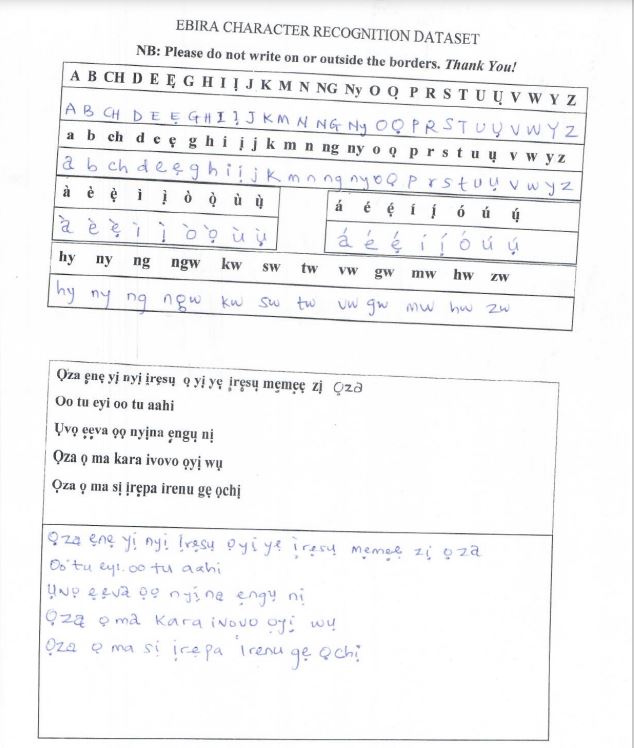 EBIRA CHARACTER RECOGNITION DATASET
NB: Please do not write on or outside the borders. Thank You!
A B CH D E Ẹ G H I Ị J K M N NG Ny O Ọ P R S T U Ụ V W Y Z
A B CH D E Ẹ G H I Ị J K M N NG Ny O Ọ P R S T U Ụ V W Y Z
a b ch d e ẹ g h i ị j k m n ng ny o ọ p r s t u ụ v w y z
a b ch d e ẹ g h i ị j k m n ng ny o ọ p r s t u ụ v w y z
à è ẹ̀ ì ị̀ ò ọ̀ ù ụ̀
á é ẹ́ í ị́ ó ú ụ́
à è ẹ̀ ì ị̀ ò ọ̀ ù ụ̀
á é ẹ́ í ị́ ó ú ụ́
hy ny ng ngw kw sw tw vw gw mw hw zw
hy ny ng ngw kw sw tw vw gw mw hw zw
Ọza ẹnẹ yị nyị ịrẹsụ ọ yị yẹ ịrẹsụ mẹmẹẹ zị ọza
Oo tu eyi oo tu aahi
Ụvọ ẹẹva ọọ nyịna ẹngụ nị
Ọza ọ ma kara ivovo ọyị wụ
Ọza ọ ma sị ịrẹpa irenu gẹ ọchị
Ọza ẹnẹ yị nyị ịrẹsụ ọyị yẹ ịrẹsụ mẹmẹẹ zị ọza
Oo tu eyi oo tu aahi
Ụvọ ẹẹva ọọ nyịna ẹngụ nị
Ọza ọ ma kara ivovo ọyị wụ
Ọza ọ ma sị ịrẹpa irenu gẹ ọchị